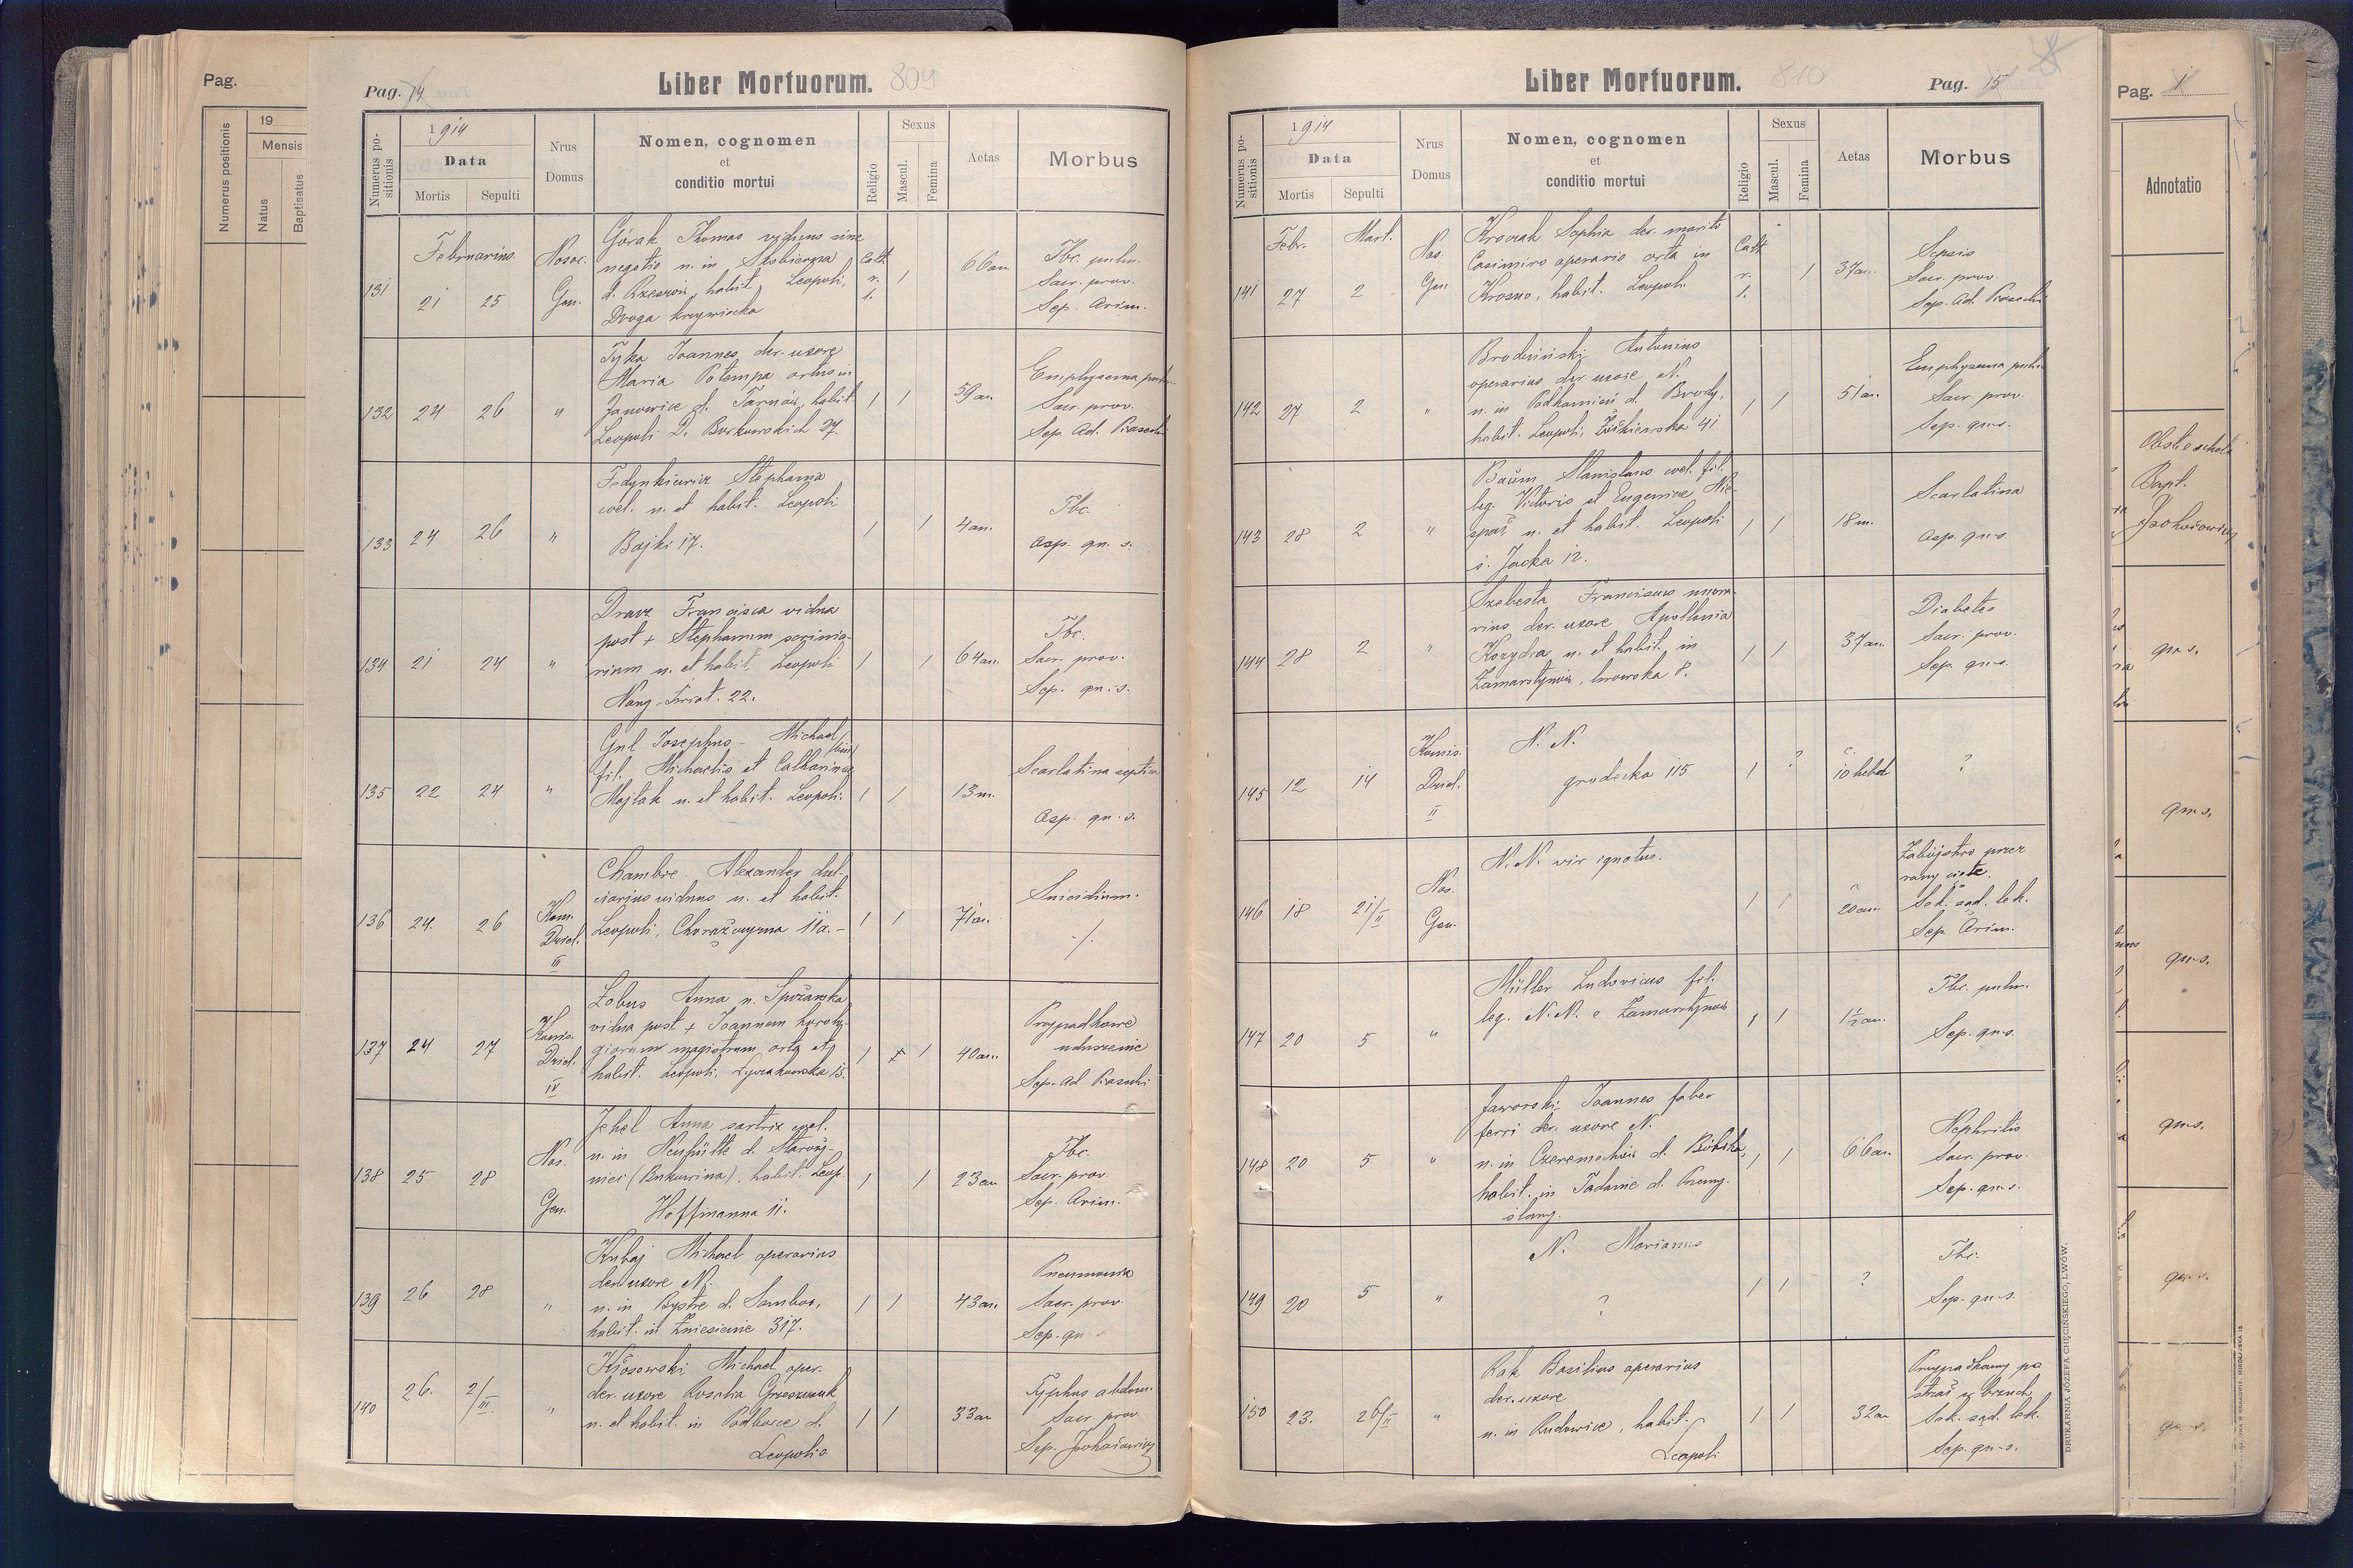 Pag.
19
Mensis
Numerus positionis
Natus
Baptisatus
Pag. 14
Liber Mortuorum. 809
Numerus positionis
1914
Data
Mortis
Sepulti
Nrus Domus
Nomen, cognomen
et
conditio mortui
Religio
Sexus
Mascul.
Femina
Aetas
Morbus
Februarius
131 21 25 Nosoc. Gen.
Górak Thomas viduus sine
negotio n. in
d. Rzeszów, habit. Leopoli,
Droga krzywiecka
Cath. r. l. 1 66 an.
Tbc. pulm.
Sacr. prov.
Sep. Arim.
132 24 26 "
Tyka Joannes der. uxore
Maria Potempa ortus in
Janowice d. Tarnów, habit.
Leopoli D. Borkowskich 27.
1 1 59 an.
Emphysema pulm.
Sacr. prov.
Sep. Ad.
133 24 26 "
Fedynkiewicz Stephania
cael. n. et habit. Leopoli
Bajki 17.
1 1 4 an.
Tbc.
Asp. qu. s.
134 21 24 "
Francisca vidua
post + Stephanum scrinia-
rium n. et habit. Leopoli
Nowy Świat. 22.
1 1 64 an.
Tbc.
Sacr. prov.
Sep. qu. s.
135 22 24 "
Gul Josephus - Michael
fil. Michaelis et Catharinae
Majtak n. et habit. Leopoli.
1 1 13 m.
Scarlatina septica
Asp. qu. s.
136 24. 26 Kom. Dziel. III
Chambre Alexander dul-
ciarius viduus n. et habit.
Leopoli, Chorążczyzna 11a.-
1 1 71 an.
Suicidium.
./.
137 24 27 Komis. Dziel. IV
Anna n.
vidua post + Joannem horolo-
giorum magistrum, orta et
habit. Leopoli, Łyczakowska 13.
1 1 40 an.
Przypadkowe
uduszenie
Sep. Ad
138 25 28 Nos. Gen.
Jekel Anna sartrix cael.
n. in Neuhütte d.
(Bukowina), habit. Leop.
Hoffmanna 11.
1 1 23 an
Tbc.
Sacr. prov.
Sep. Arim.
139 26 28 "
Kubaj Michael operarius
der. uxore N.
n. in Bystre d. Sambor,
habit. in Zniesienie 317.
1 1 43 an.
Pneumonia
Sacr. prov.
Sep. qu
140 26. 2/III. "
Kłosowski Michael oper.
der. uxore
n. et habit. in Podborce d.
Leopolis
1 1 33 an
Typhus abdom.
Sacr. prov
Sep.
Liber Mortuorum. 810
Pag. 15
Numerus positionis
1914
Data
Mortis
Sepulti
Nrus Domus
Nomen, cognomen
et
conditio mortui
Religio
Sexus
Mascul.
Femina
Aetas
Morbus
Febr. Mart.
141 27 2 Nos. Gen
Sophia der. marito
Casimiro operario orta in
Krosno, habit. Leopoli
Cath. r. l. 1 37 an.
Sepsis
Sacr. prov.
Sep. Ad.
142 27 2 "
Brodziński Antonius
operarius der. uxore N.
n. in Podkamień d. Brody,
habit. Leopoli, Żółkiewska 41
1 1 51 an.
Emphysema pulm.
Sacr. prov.
Sep. qu. s.
143 28 2 "
Baum Stanislaus cael. fil.
leg. Victoris et Eugeniae Nie-
n. et habit. Leopoli
ś. Jacka 12.
1 1 18 m.
Scarlatina
Asp. qu. s.
144 28 2 "
Szebesta Franciscus mura-
rius der. uxore Apollonia
Kozydra n. et habit. in
Zamarstynów, lwowska 8.
1 1 37 an.
Diabetes
Sacr. prov.
Sep. qu. s.
145 12 14 Komis. Dziel. II
N. N.
grodecka 115
1 ? 10 hebd
?
146 18 21/II Nos. Gen.
N. N. vir ignotus.
1 1 20 an.
Zabójstwo przez
rany cięte.
Sek. sąd. lek.
Sep. Arim.
147 20 5 "
Müller Ludovicus fil.
leg. N. N. e Zamarstynów
1 1 1 1/2 an.
Tbc. pulm.
Sep. qu. s.
148 20 5 "
Jaworski Joannes faber
ferri der. uxore N.
n. in Czeremochów d. Bóbrka,
habit. in Tadanie d. Przemy-
ślany.
1 1 66 an.
Nephritis
Sacr. prov.
Sep. qu. s.
149 20 5 "
N. Marianus
?
1 1 ?
Tbc.
Sep. qu. s.
150 23. 26/II "
Rak Basilius operarius
der. uxore
n. in Rudawice, habit.
Leopoli
1 1 32 an
Przypadkowy po-
strzał w brzuch
Sek. sąd. lek.
Sep. qu. s.
DRUKARNIA JÓZEFA CHĘCIŃSKIEGO, LWÓW.
Pag. 1
Adnotatio
Bapt.
qu. s.
qu. s.
qu. s.
qu. s.
qu. s.
qu. s.